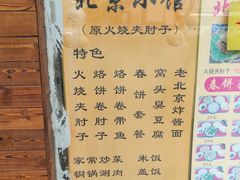 北京小馆
(原火烧夹肘子)
特色
火烧夹肘子
烙饼卷肘子
烙饼卷带鱼
春饼套餐
窝头臭豆腐
老北京炸酱面
家常炒菜 米饭
铜锅涮肉 盖饭
北
火烧夹肘子
春饼